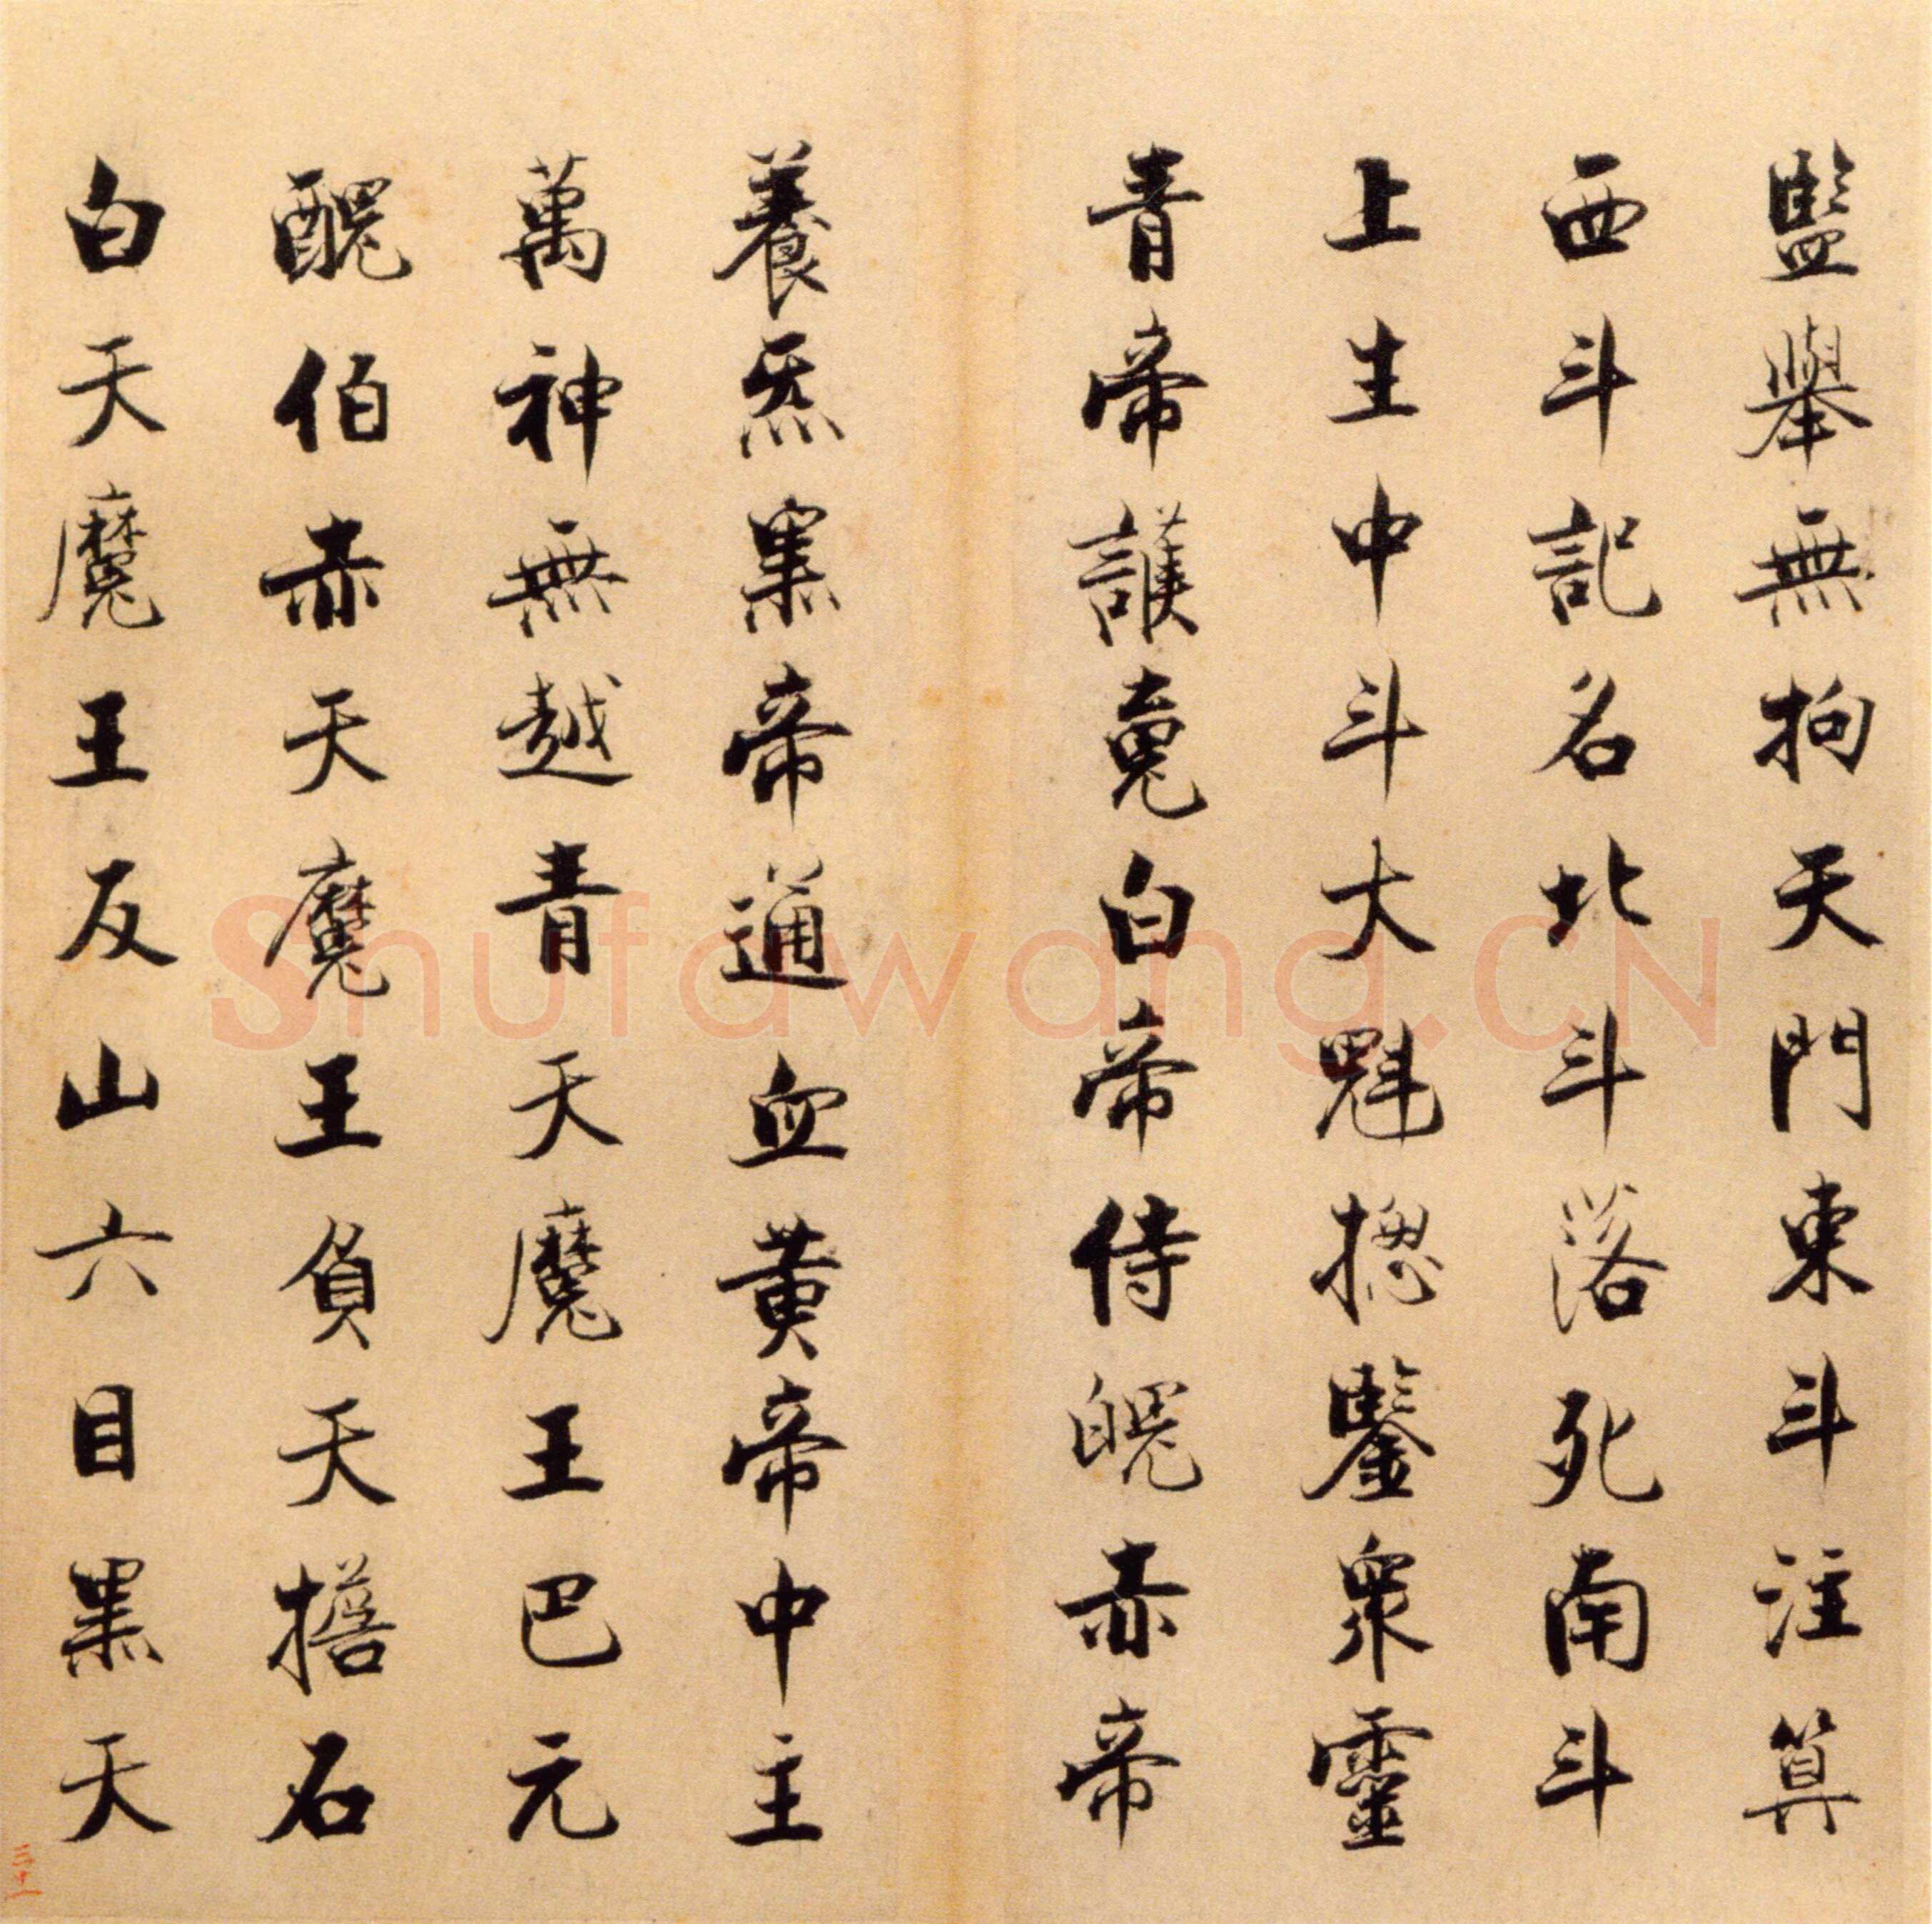 監舉無拘天門東斗注算
西斗記名北斗落死南斗
上生中斗大魁揔鑒衆靈
青帝護魂白帝侍魄赤帝
養炁黑帝通血黄帝中主
萬神無越青天魔王巴元
醜伯赤天魔王負天擔石
白天魔王反山六目黑天
三十一
Shufawang.CN